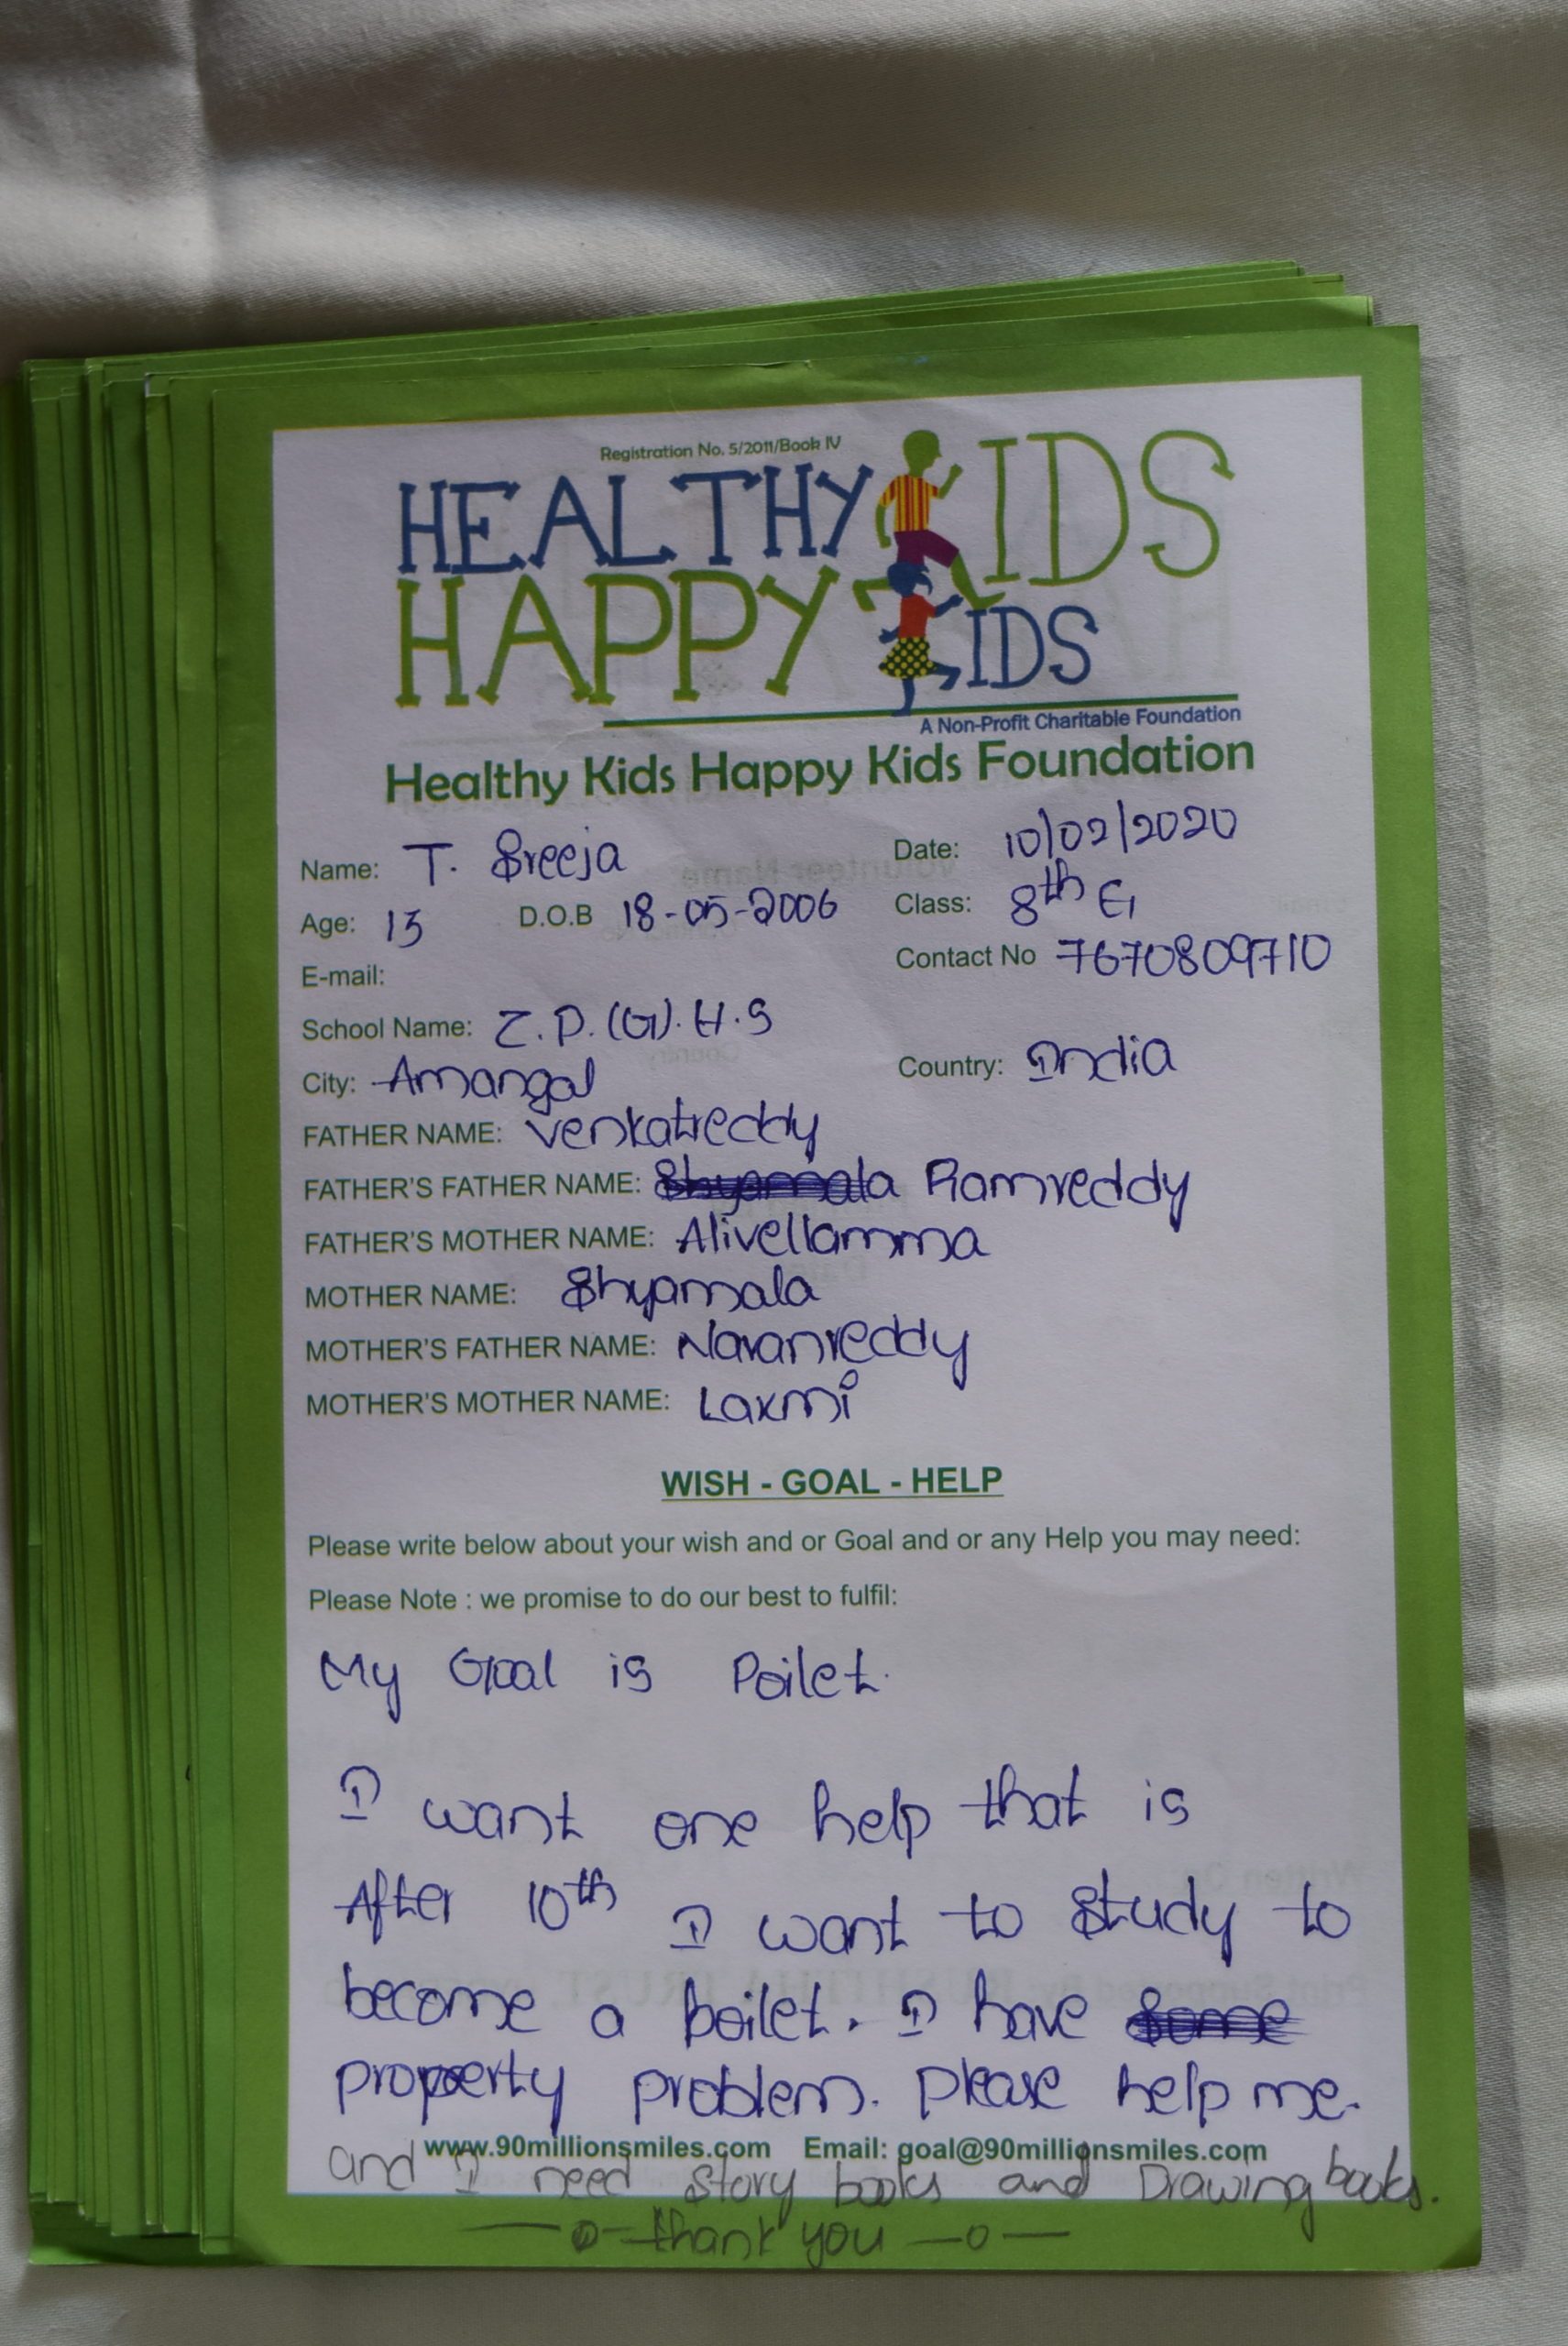 Registration No. 5/2011/Book IV
HEALTHY KIDS
HAPPY KIDS
A Non-Profit Charitable Foundation
Healthy Kids Happy Kids Foundation
Name: T. Sreeja Date: 10/02/2020
Age: 13 D.O.B 18-05-2006 Class: 8th E,
E-mail: Contact No 7670809710
School Name: Z.P.(G).H.S
City: Amangal Country: India
FATHER NAME: Venkatreddy
FATHER'S FATHER NAME: Shyamala Ramreddy
FATHER'S MOTHER NAME: Alivellamma
MOTHER NAME: Shyamala
MOTHER'S FATHER NAME: Navanreddy
MOTHER'S MOTHER NAME: Laxmi
WISH - GOAL - HELP
Please write below about your wish and or Goal and or any Help you may need:
Please Note : we promise to do our best to fulfil:
My Goal is Poilet.
I want one help that is
After 10th I want to study to
become a poilet. I have some
property problem. please help me.
www.90millionsmiles.com Email: goal@90millionsmiles.com
and I need story books and Drawing books.
thank you